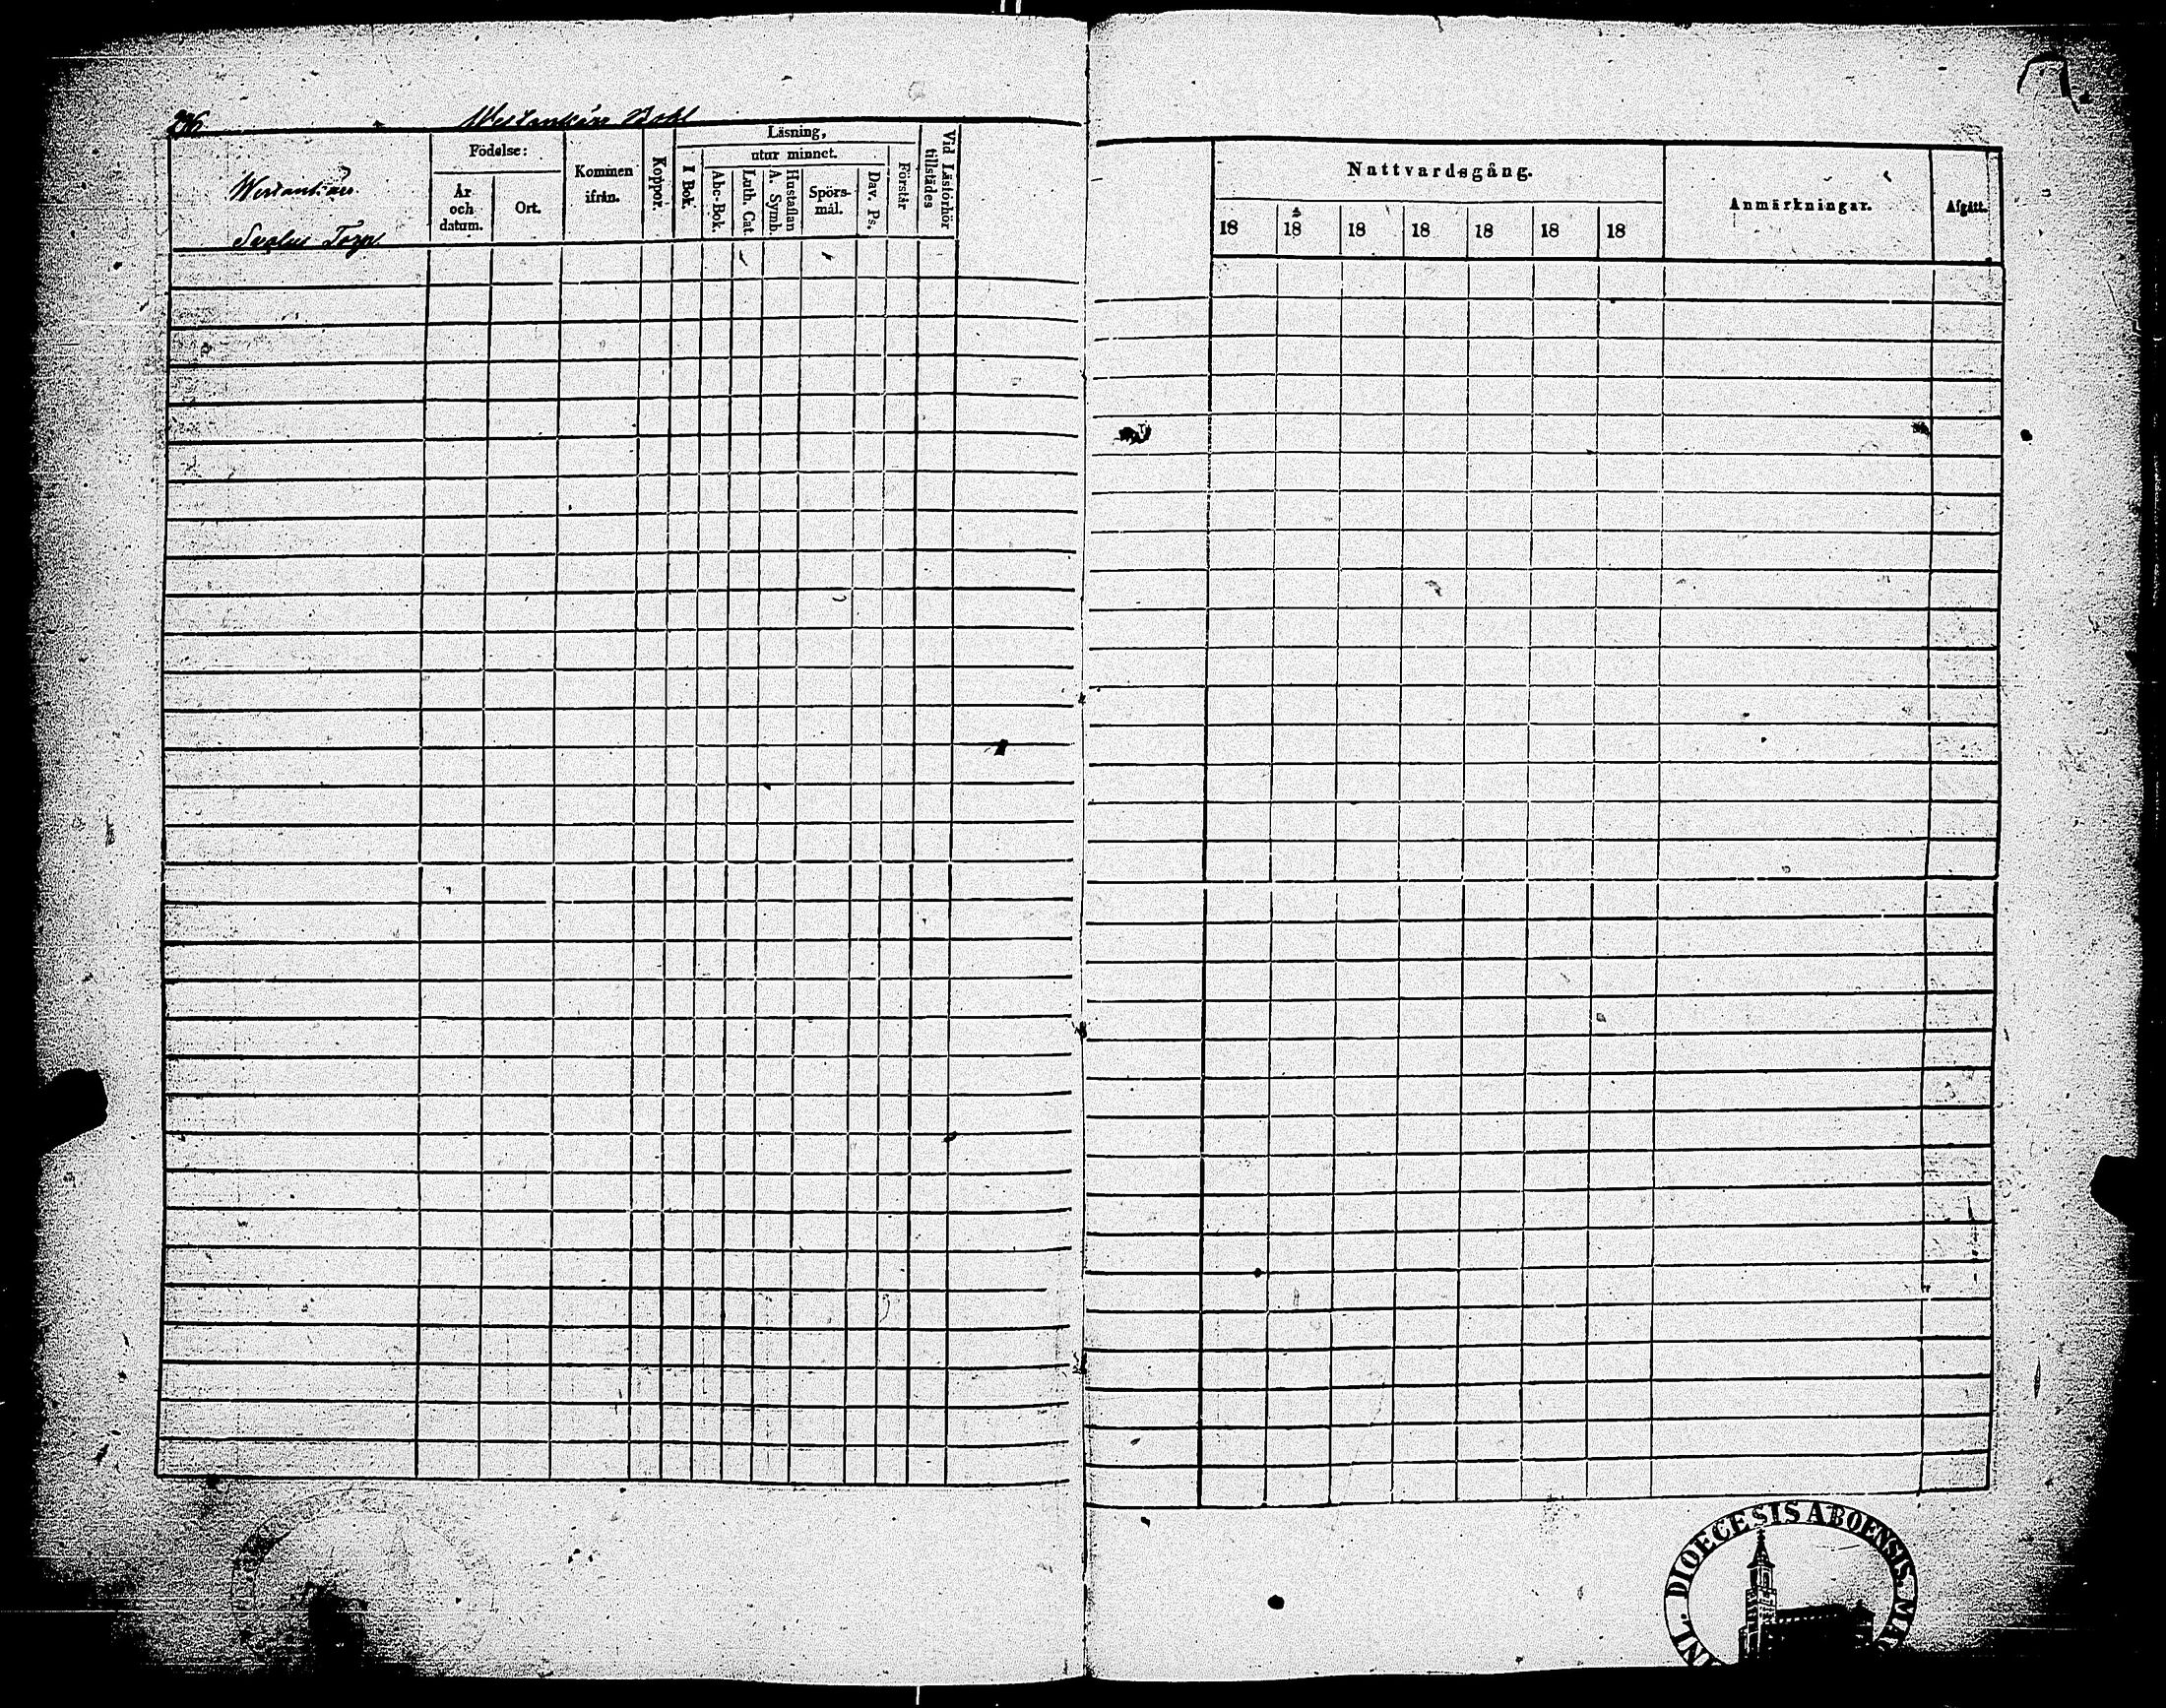 Westankärr Bohl
Westankärr
Torp
Födelse:
År och datum.
Ort.
Kommen ifrån.
Koppor.
Läsning,
I Bok.
utur minnet.
Abc-Bok.
Luth. Cat.
Hustaflan A. Symb.
Spörsmål.
Dav. Ps.
Förstår
Vid Läsförhör tillstädes
Nattvardsgång.
18 18 18 18 18 18 18
Anmärkningar.
Afgått.
DIOECESIS ABOENSIS.